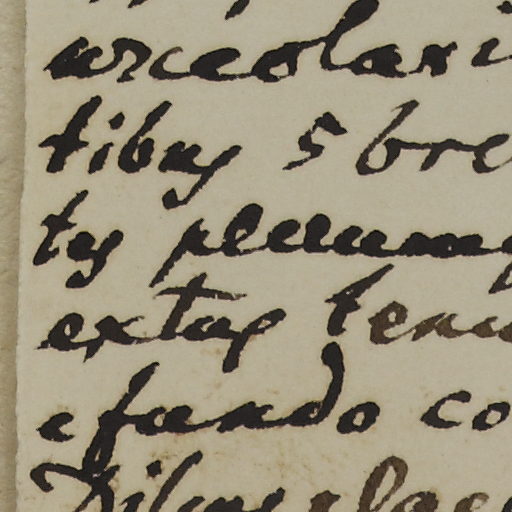 urceolari
tibus 5 bre
tus plerumq
extus tenu
e fundo co